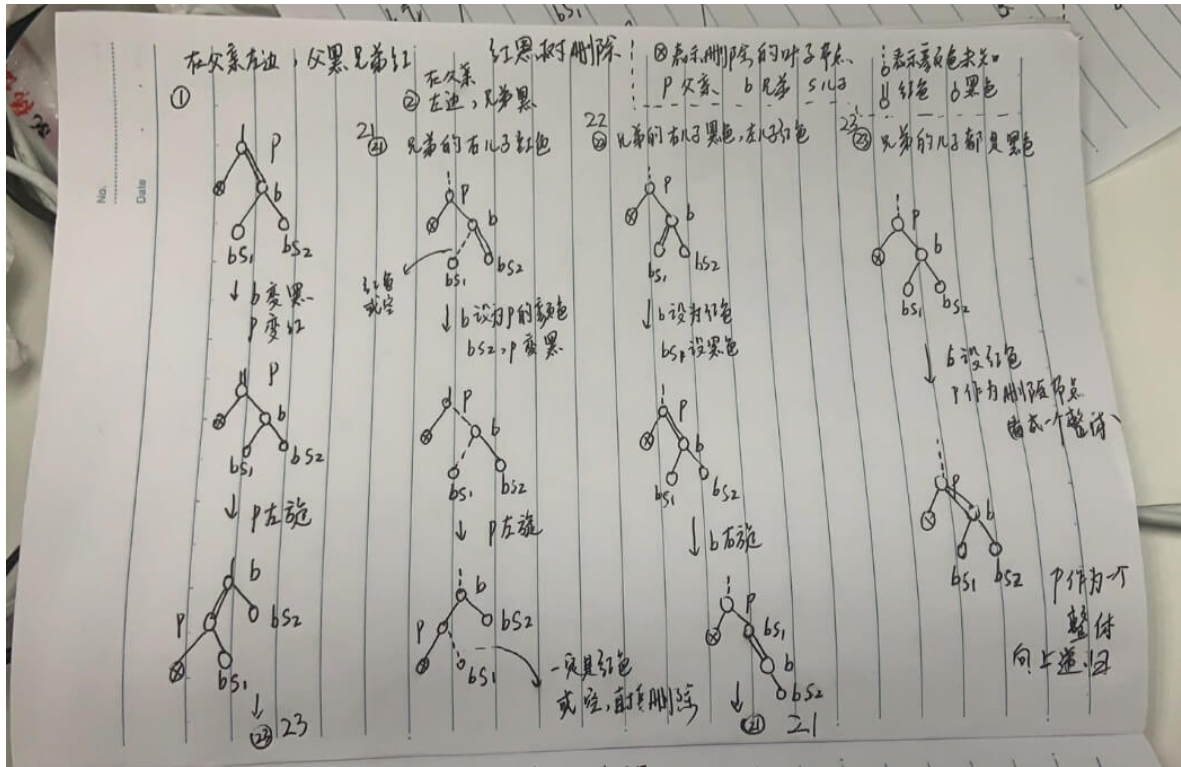 No.
Date
红黑树删除
⊗表示删除的叶子节点
p 父亲 b 兄弟 s儿子
表示颜色未知
红色 黑色
在父亲左边,父黑兄弟红
①
p
b
bS₁
bS₂
↓ b变黑
p变红
p
b
bS₁
bS₂
↓ p左旋
b
p
bS₂
bS₁
↓
23
② 在父亲
左边,兄弟黑
21
㉑ 兄弟的右儿子红色
p
b
bS₁
bS₂
红色
或空
↓ b设为p的颜色
bS₂,p变黑
p
b
bS₁
bS₂
↓ p左旋
b
p
bS₂
bS₁
一定是红色
或空,直接删除
22
㉒ 兄弟的右儿子黑色,左儿子红色
p
b
bS₁
bS₂
↓ b设为红色
设黑色
p
b
bS₁
bS₂
↓ b右旋
p
bS₁
b
bS₂
↓
㉑ 21
23
㉓ 兄弟的儿子都是黑色
p
b
bS₁
bS₂
↓ b设红色
p作为删除节点
看成一个整体
p
b
bS₁
bS₂
p作为一个
整体
向上递归
bS₁